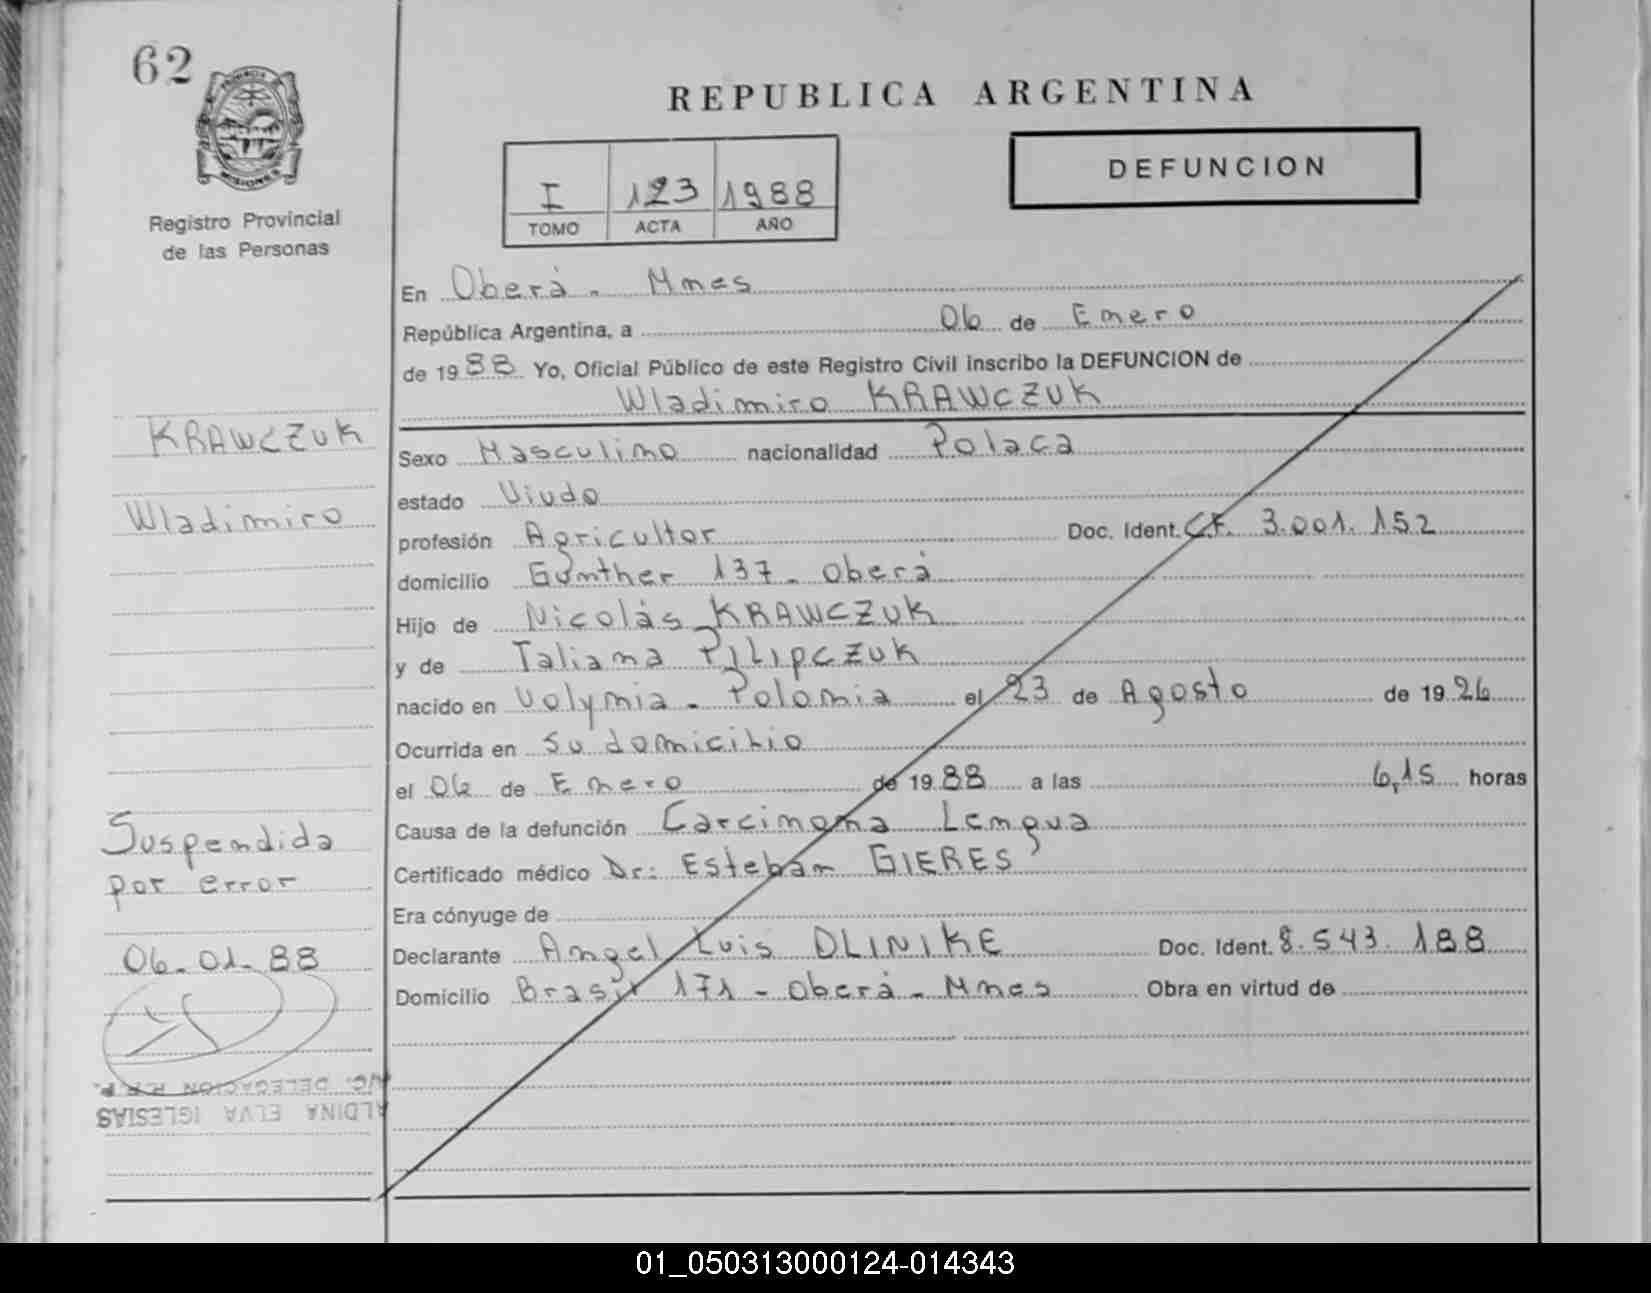 62
MISIONES
Registro Provincial
de las Personas
REPUBLICA ARGENTINA
I 123 1988
TOMO ACTA AÑO
DEFUNCION
En Oberá - Mnes
República Argentina, a 06 de Enero
de 1988 Yo, Oficial Público de este Registro Civil inscribo la DEFUNCION de
Wladimiro KRAWCZUK
KRAWCZUK
Wladimiro
Sexo Masculino nacionalidad Polaca
estado Viudo
profesión Agricultor Doc. Ident. C.F. 3.001.152
domicilio Gunther 137 - Oberá
Hijo de Nicolás KRAWCZUK
y de Taliana PILIPCZUK
nacido en Volynia - Polonia el 23 de Agosto de 1926
Ocurrida en su domicilio
el 06 de Enero de 1988 a las 6,15 horas
Causa de la defunción Carcinoma Lengua
Certificado médico Dr: Esteban GIERES
Era cónyuge de
Declarante Angel Luis DLINIKE Doc. Ident. 8.543.188
Domicilio Brasil 171 - Oberá - Mnes Obra en virtud de
Suspendida
por error
06-01-88
ALDINA ELVA IGLESIAS
DELEGACION R.P.P.
01_050313000124-014343